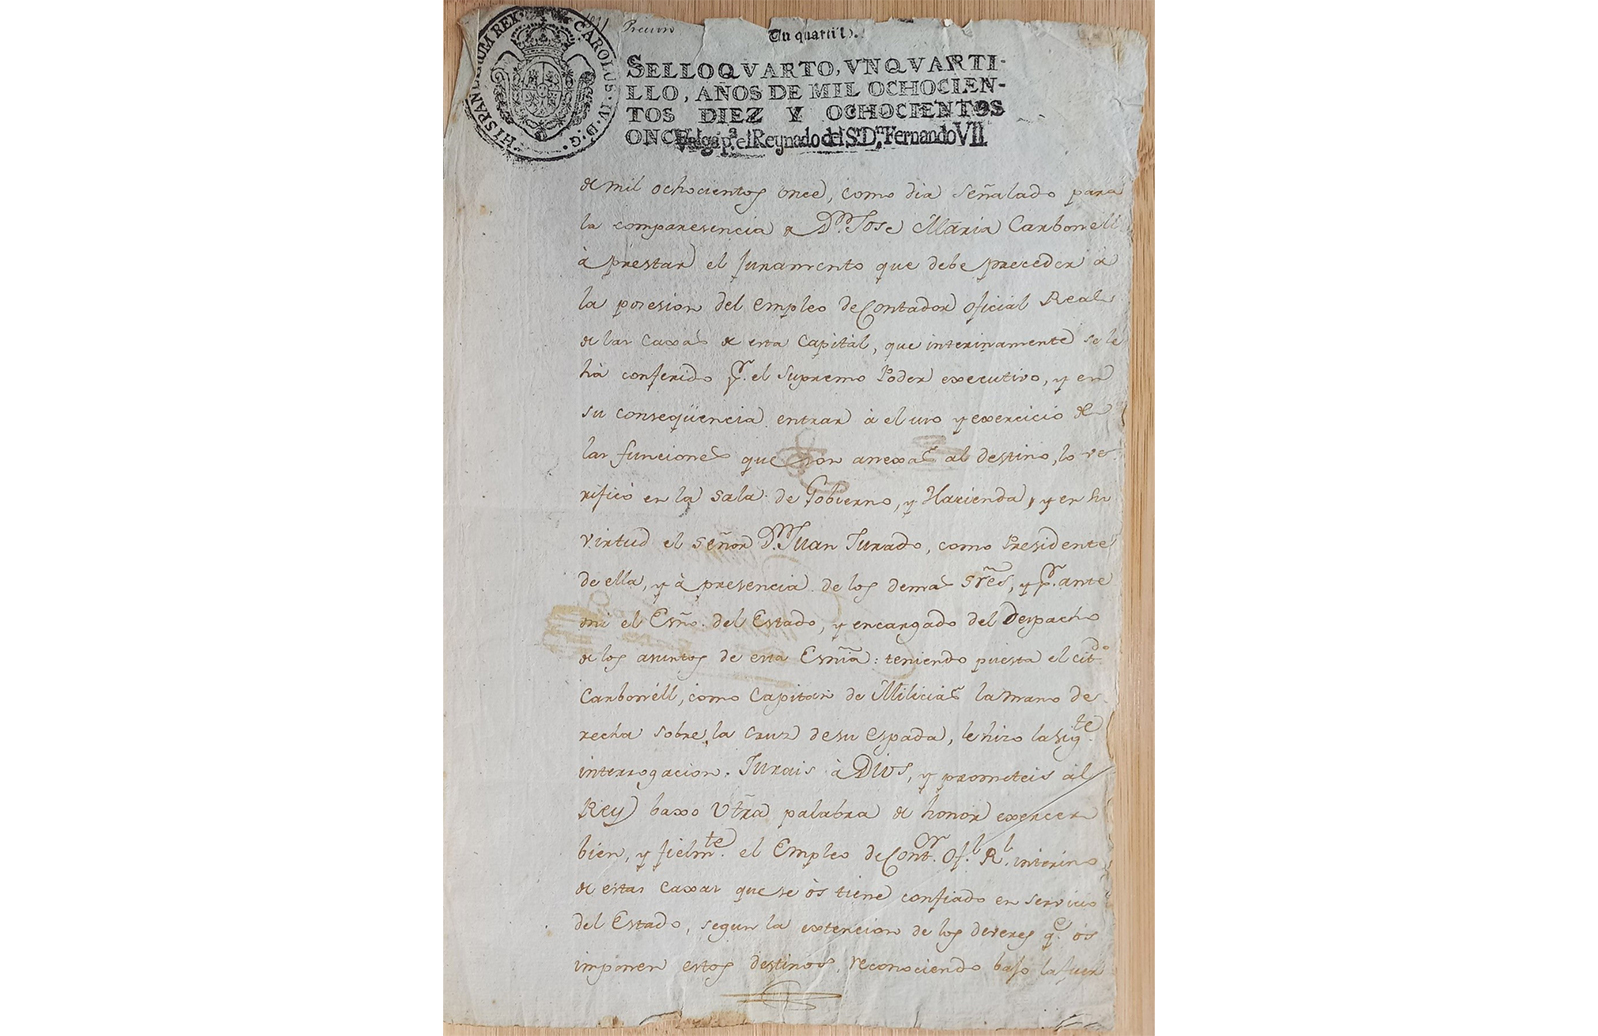 HISPANIARUM REX CAROLUS. IV. D. G.
Un quartil).
SELLO QVARTO, VN QVARTI-
LLO, AÑOS DE MIL OCHOCIEN-
TOS DIEZ Y OCHOCIENTOS
ONCE
Valga pa. el Reynado del Sr. Dn. Fernando VII
de mil ochocientos once, como dia señalado para
la comparesencia de Dn. Jose Maria Carbonell
à prestar el juramento que debe preceder à
la posesion del empleo de Contador oficial Real
de las caxas de esta Capital, que interinamente se le
hà conferido pr. el Supremo Poder executivo, y en
su conseqüencia entrar à el uso y exercicio de
las funciones que son anexas al destino, lo ve-
rificò en la sala de Gobierno, y Hacienda, y en su
virtud el señor Dn. Juan Jurado, como Presidente
de ella, y à presencia de los demas Sres, y pr. ante
mi el Esño. del Estado, y encargado del Despacho
de los asuntos de esta Esñia: teniendo puesta el citdo.
Carbonèll, como Capitan de Milicias la mano de-
recha sobre la cruz de su espada, le hizo la sigte.
interrogacion. Jurais à Dios, y prometeis al
Rey baxo Vtra palabra de honor exercer
bien, y fielmte. el Empleo de Contor. Ofl. Rl. interino
de estas caxas que se òs tiene confiado en servicio
del Estado, segun la extencion de los deveres qe. os
imponen estos destinos, reconociendo bajo la fuer